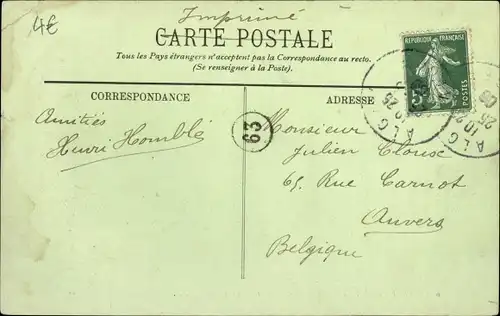 Imprimé
4€
CARTE POSTALE
Tous les Pays étrangers n'acceptent pas la Correspondance au recto.
(Se renseigner à la Poste).
REPUBLIQUE FRANÇAISE
POSTES
CORRESPONDANCE
ADRESSE
Amitiés
Henri Homblé
63
Monsieur
Julien Clouse
65, Rue Carnot
Anvers
Belgique
ALG
25